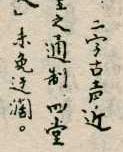 二字古音近
之通制四堂
」未免迂濶。